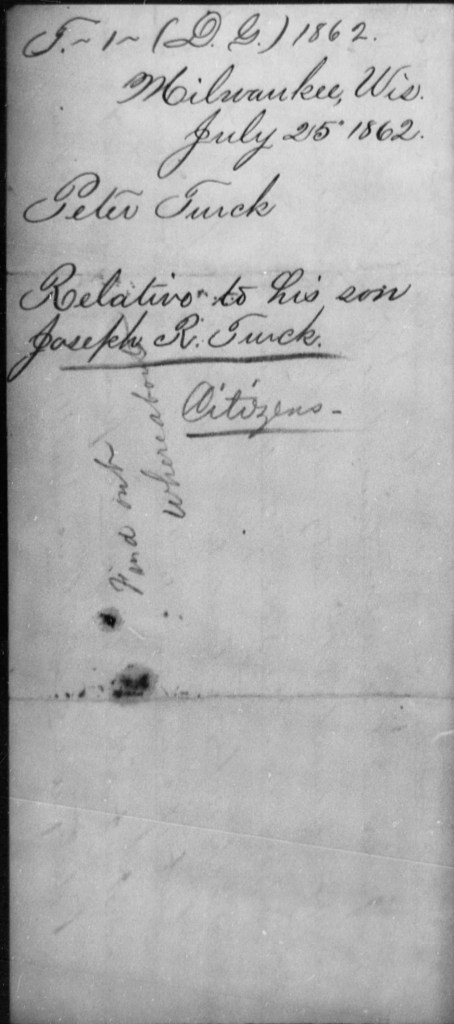 T. ~ 1 ~ (D. G.) 1862.
Milwaukee, Wis.
July 25" 1862.
Peter Turck
Relative to his son
Joseph R. Turck.
Citizens -
Find out
Whereabouts